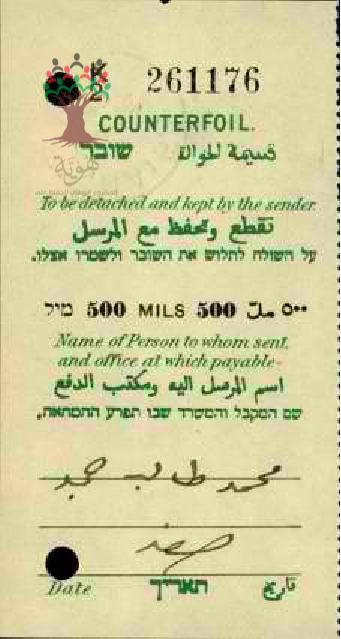 K/2 261176
COUNTERFOIL.
שובר قسيمة الحوالة
To be detached and kept by the sender.
تقطع وتحفظ مع المرسل
על השולח לתלוש את השובר ולשמרו אצלו.
מיל 500 MILS 500 ملّ ٥٠٠
Name of Person to whom sent,
and office at which payable-
اسم المرسل اليه ومكتب الدفع
שם המקבל והמשרד שבו תפרע ההמחאה.
محمد طالب حمد
صفد
Date תאריך تاريخ